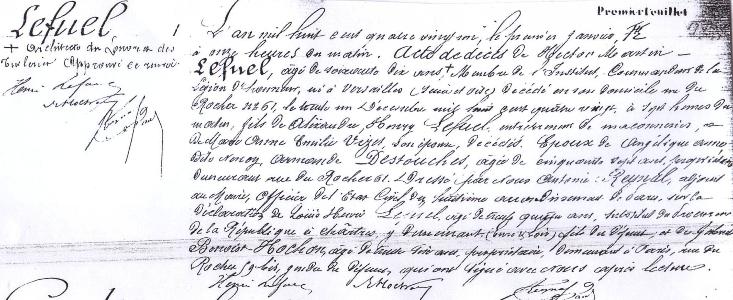 Lefuel
+ Architecte du Louvre et des
Tuileries Approuvé ce renvoi
Henri Lefuel
Premier feuillet
L'an mil huit cent quatre vingt un, le premier Janvier,
à onze heures du matin. Acte de décès de Hector Martin
Lefuel, âgé de soixante dix ans, Membre de l'Institut, Commandeur de la
Légion d'honneur, né à Versailles (Seine et Oise) Décédé en son domicile rue du
Rocher N° 61, le trente un Décembre mil huit cent quatre vingt, à sept heures du
matin, fils de Alexandre, Henry Lefuel, entrepreneur de maçonnerie, et
de Marie Anne Emilie Vezes, son épouse, décédés. Epoux de Angélique
Nancy Armande Destouches, âgée de cinquante sept ans, propriétaire
demeurant rue du Rocher 61. Dressé par nous Antoine Resnel, adjoint
au Maire, Officier de l'Etat Civil du huitième arrondissement de Paris, sur la
Déclaration de Louis Henri Lefuel, âgé de ans, Substitut du Procureur
de la République à Chartres, y demeurant (Eure et Loir) fils du Défunt, et de
Benoist Hochon, âgé de trente ans, propriétaire, demeurant à Paris, rue du
Rocher 61, gendre du Défunt, qui ont signé avec nous après lecture.
Henri Lefuel